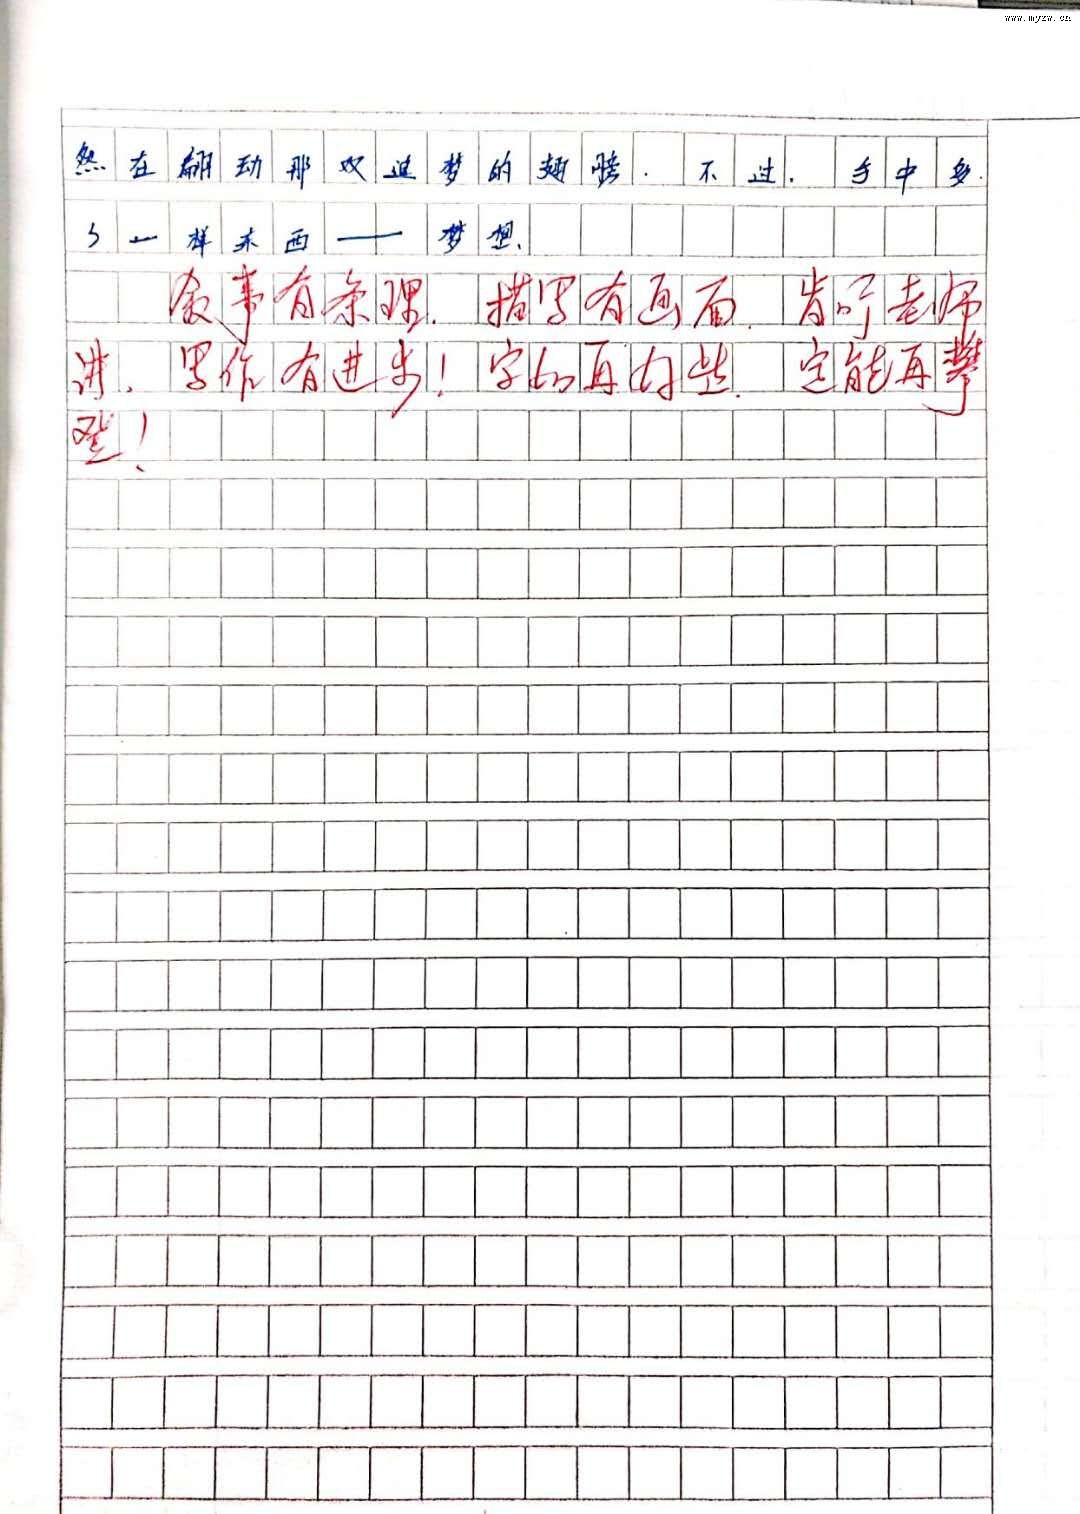 www.myzw.cn
然在翻动那双追梦的翅膀.不过.手中多
了一样东西——梦想.
叙事有条理.描写有画面.肯听老师
讲.写作有进步!字如再好些.定能再攀
登!